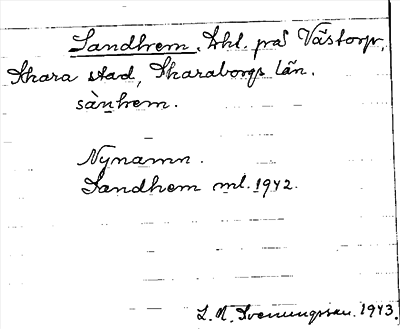 Sandhem. Lht. på Västorp,
Skara stad, Skaraborgs län.
sànhem.
Nynamn.
Sandhem ml. 1942.
L. A. Svenungsson. 1943.